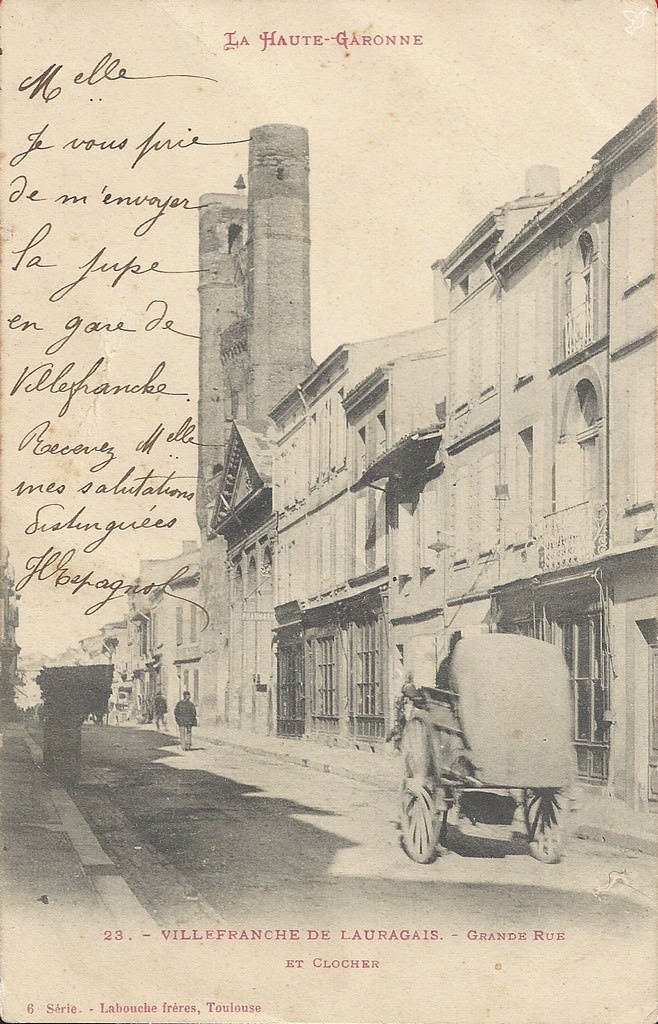 La Haute-Garonne
Melle
Je vous prie
de m'envoyer
la jupe
en gare de
Villefranche.
Recevez Melle
mes salutations
distinguées
HEspagnol
23. - Villefranche de Lauragais. - Grande Rue
et Clocher
6 Série. - Labouche frères, Toulouse